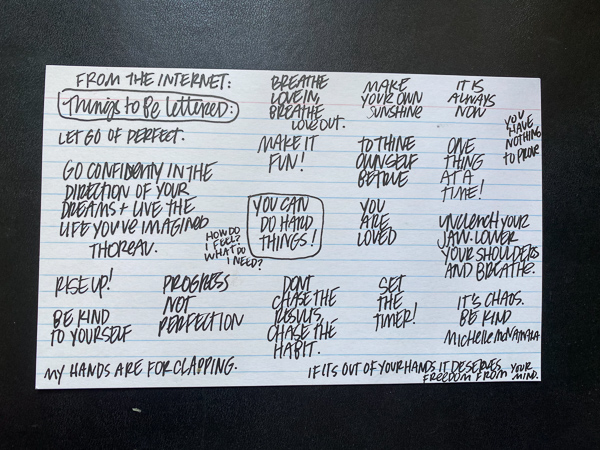 FROM THE INTERNET:
Things to Be Lettered:
LET GO OF PERFECT.
GO CONFIDENTLY IN THE
DIRECTION OF YOUR
DREAMS + LIVE THE
LIFE YOU'VE IMAGINED
THOREAU.
BREATHE
LOVE IN,
BREATHE
LOVE OUT.
MAKE
YOUR OWN
SUNSHINE
IT IS
ALWAYS
NOW
YOU
HAVE
NOTHING
TO PROVE
MAKE IT
FUN!
TO THINE
OWN SELF
BE TRUE
ONE
THING
AT A
TIME!
HOW DO
I FEEL?
WHAT DO
I NEED?
YOU CAN
DO HARD
THINGS!
YOU
ARE
LOVED
UNCLENCH YOUR
JAW. LOWER
YOUR SHOULDERS
AND BREATHE.
RISE UP!
BE KIND
TO YOURSELF
PROGRESS
NOT
PERFECTION
DONT
CHASE THE
RESULTS,
CHASE THE
HABIT.
SET
THE
TIMER!
IT'S CHAOS.
BE KIND
Michelle McNamara
MY HANDS ARE FOR CLAPPING.
IF ITS OUT OF YOUR HANDS IT DESERVES
FREEDOM FROM YOUR
MIND.